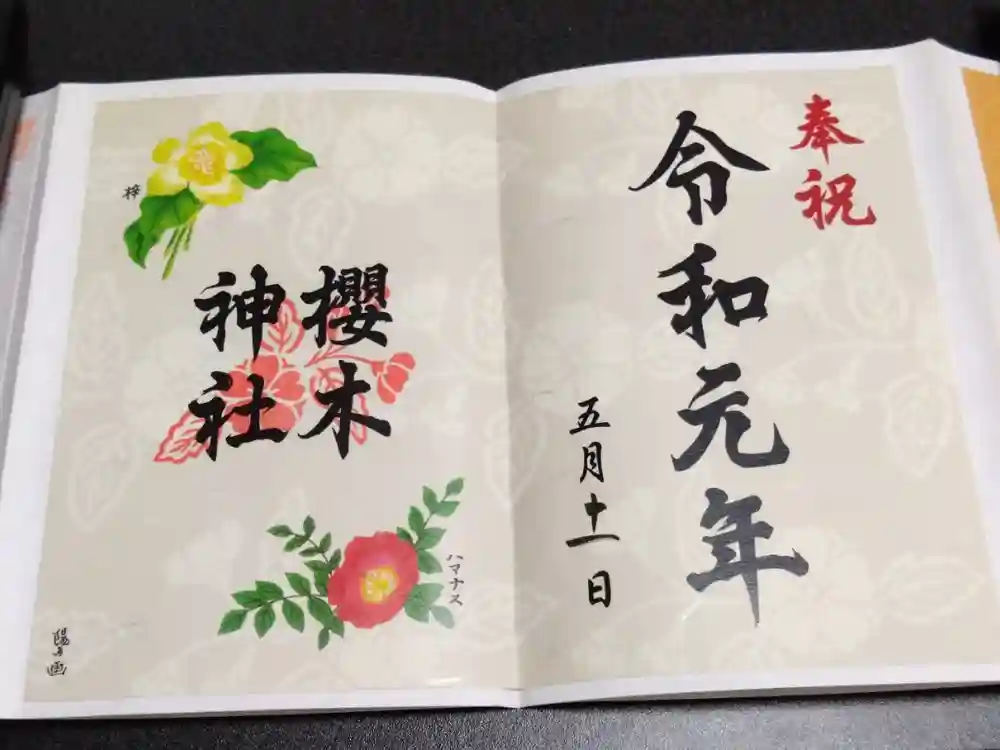 奉祝
令和元年
五月十一日
櫻木
神社
梓
ハマナス